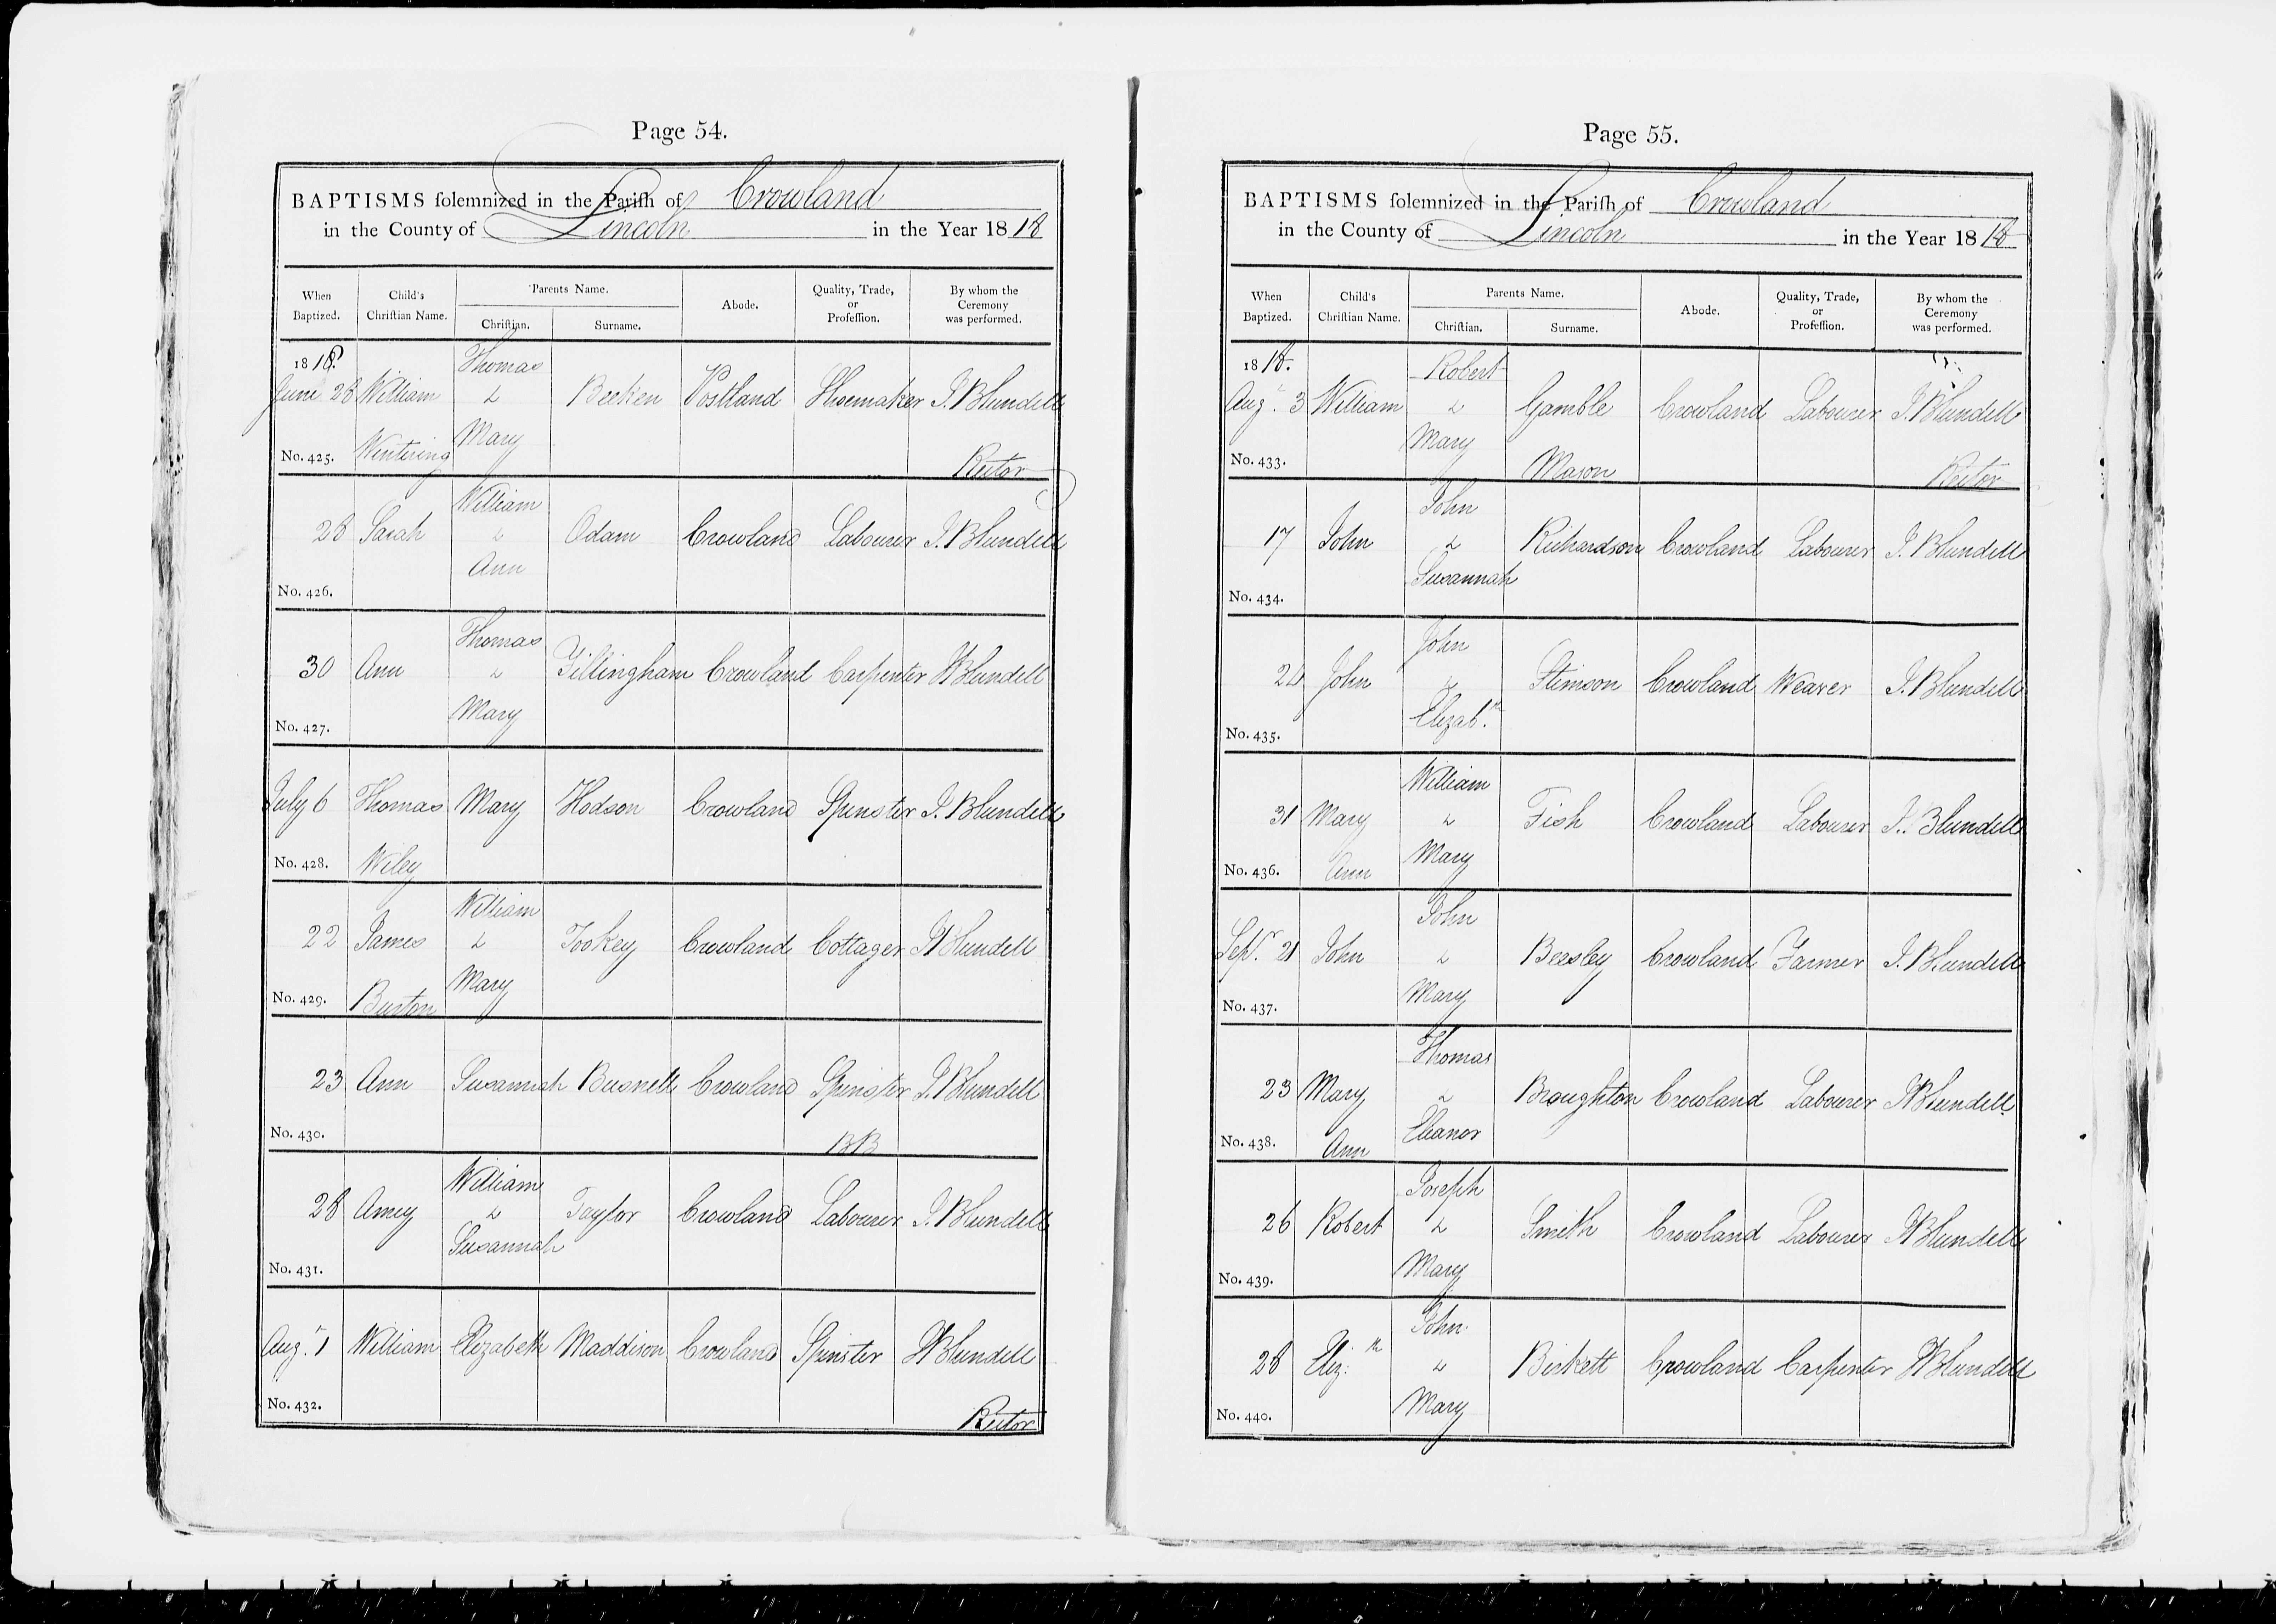 Page 54.
BAPTISMS solemnized in the Parish of Crowland
in the County of Lincoln in the Year 1818
When Baptized. Child's Christian Name. Parents Name. Christian. Surname. Abode. Quality, Trade, or Profession. By whom the Ceremony was performed.
1818.
June 28 William Wintering Thomas & Mary Beeken Postland Shoemaker J. Blundell Rector
No. 425.
28 Sarah William & Ann Odam Crowland Labourer J. Blundell
No. 426.
30 Ann Thomas & Mary Fillingham Crowland Carpenter J Blundell
No. 427.
July 6 Thomas Wiley Mary Hodson Crowland Spinster J. Blundell
No. 428.
22 James Burton William & Mary Tookey Crowland Cottager J Blundell
No. 429.
23 Ann Susannah Busnell Crowland Spinster BB J. Blundell
No. 430.
28 Amey William & Susannah Taylor Crowland Labourer J. Blundell
No. 431.
Augt. 1 William Elizabeth Maddison Crowland Spinster J Blundell Rector
No. 432.
Page 55.
BAPTISMS solemnized in the Parish of Crowland
in the County of Lincoln in the Year 1818
When Baptized. Child's Christian Name. Parents Name. Christian. Surname. Abode. Quality, Trade, or Profession. By whom the Ceremony was performed.
1818.
Augt. 3 William Robert & Mary Gamble Mason Crowland Labourer J. Blundell Rector
No. 433.
17 John John & Susannah Richardson Crowland Labourer J. Blundell
No. 434.
24 John John & Elizabth. Stimson Crowland Weaver J. Blundell
No. 435.
31 Mary Ann William & Mary Fish Crowland Labourer J. Blundell
No. 436.
Sepr. 21 John John & Mary Beasley Crowland Farmer J. Blundell
No. 437.
23 Mary Ann Thomas & Eleanor Broughton Crowland Labourer J Blundell
No. 438.
26 Robert Joseph & Mary Smith Crowland Labourer J Blundell
No. 439.
28 Eliz:th John & Mary Birkett Crowland Carpenter J Blundell
No. 440.